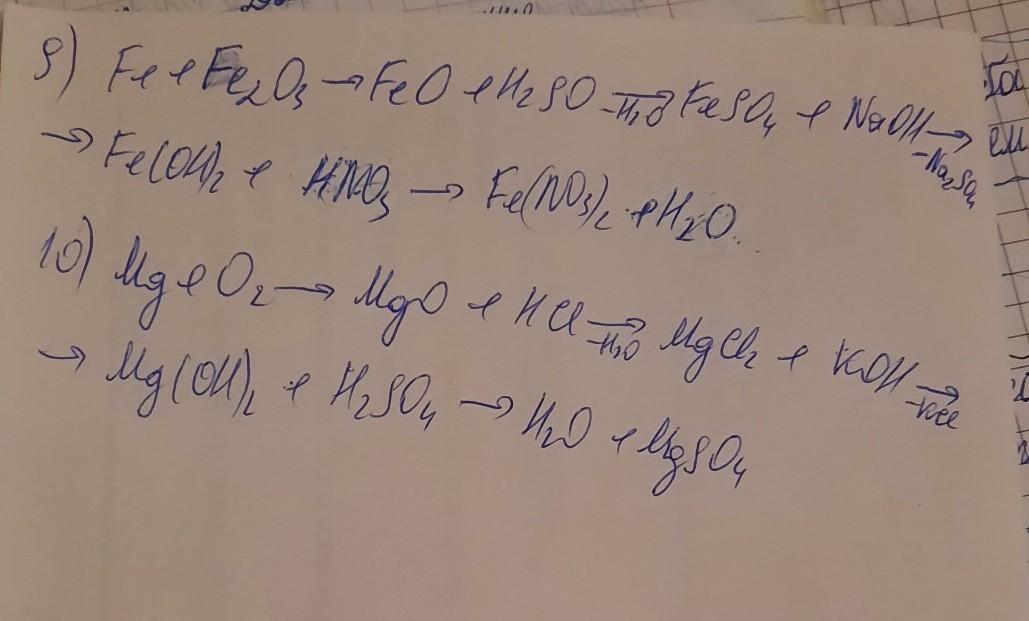 9) Fe + Fe₂O₃ → FeO + H₂SO →-H₂O FeSO₄ + NaOH →-Na₂SO₄
→ Fe(OH)₂ + HNO₃ → Fe(NO₃)₂ + H₂O.
10) Mg + O₂ → MgO + HCl →-H₂O MgCl₂ + KOH →-KCl
→ Mg(OH)₂ + H₂SO₄ → H₂O + MgSO₄